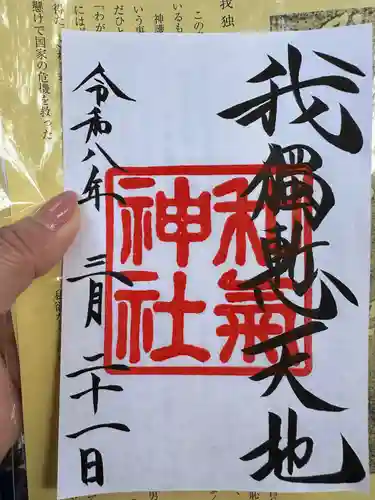 我獨慙天地
和氣
神社
令和八年 三月二十一日
我 独
この
神護
いるも
いう事
だひと
「わが
には
懸けて国家の危機を救った